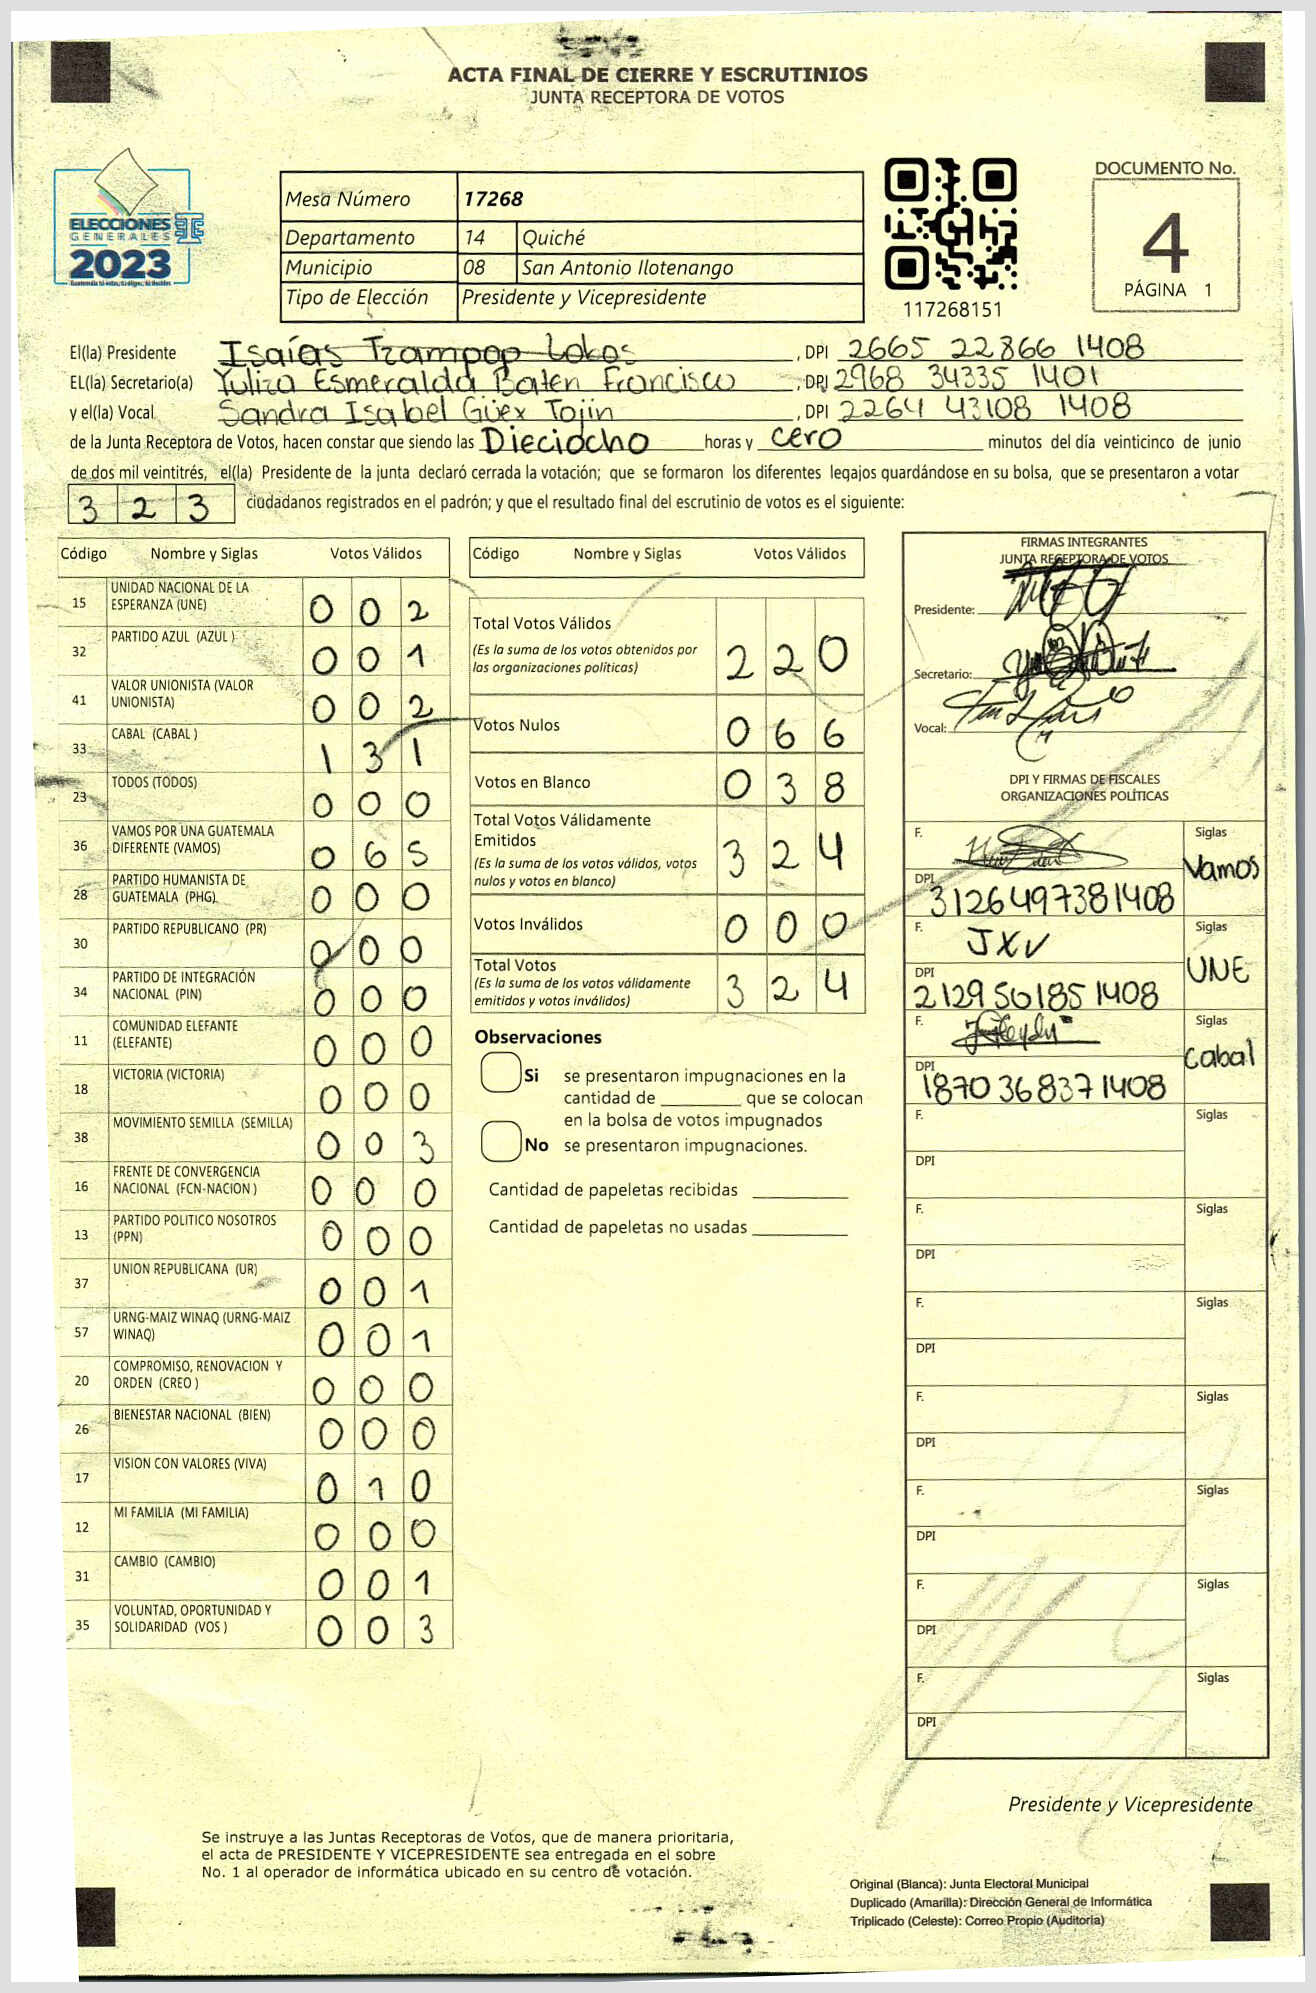 ACTA FINAL DE CIERRE Y ESCRUTINIOS
JUNTA RECEPTORA DE VOTOS
ELECCIONES
GENERALES
2023
Mesa Número 17268
Departamento 14 Quiché
Municipio 08 San Antonio Ilotenango
Tipo de Elección Presidente y Vicepresidente
117268151
DOCUMENTO No.
4
PÁGINA 1
El(la) Presidente Isaías Tzampop Lobos, DPI 2665 22866 1408
EL(la) Secretario(a) Yuliza Esmeralda Baten Francisco, DPI 2968 34335 1401
y el(la) Vocal Sandra Isabel Güex Tojin, DPI 2264 43108 1408
de la Junta Receptora de Votos, hacen constar que siendo las Dieciocho horas y cero minutos del día veinticinco de junio
de dos mil veintitrés, el(la) Presidente de la junta declaró cerrada la votación; que se formaron los diferentes legajos guardándose en su bolsa, que se presentaron a votar
323 ciudadanos registrados en el padrón; y que el resultado final del escrutinio de votos es el siguiente:
Código Nombre y Siglas Votos Válidos
15 UNIDAD NACIONAL DE LA ESPERANZA (UNE) 002
32 PARTIDO AZUL (AZUL ) 001
41 VALOR UNIONISTA (VALOR UNIONISTA) 002
33 CABAL (CABAL ) 131
23 TODOS (TODOS) 000
36 VAMOS POR UNA GUATEMALA DIFERENTE (VAMOS) 065
28 PARTIDO HUMANISTA DE GUATEMALA (PHG) 000
30 PARTIDO REPUBLICANO (PR) 000
34 PARTIDO DE INTEGRACIÓN NACIONAL (PIN) 000
11 COMUNIDAD ELEFANTE (ELEFANTE) 000
18 VICTORIA (VICTORIA) 000
38 MOVIMIENTO SEMILLA (SEMILLA) 003
16 FRENTE DE CONVERGENCIA NACIONAL (FCN-NACION ) 000
13 PARTIDO POLITICO NOSOTROS (PPN) 000
37 UNION REPUBLICANA (UR) 001
57 URNG-MAIZ WINAQ (URNG-MAIZ WINAQ) 001
20 COMPROMISO, RENOVACION Y ORDEN (CREO ) 000
26 BIENESTAR NACIONAL (BIEN) 000
17 VISION CON VALORES (VIVA) 010
12 MI FAMILIA (MI FAMILIA) 000
31 CAMBIO (CAMBIO) 001
35 VOLUNTAD, OPORTUNIDAD Y SOLIDARIDAD (VOS ) 003
Código Nombre y Siglas Votos Válidos
Total Votos Válidos 220
(Es la suma de los votos obtenidos por
las organizaciones políticas)
Votos Nulos 066
Votos en Blanco 038
Total Votos Válidamente
Emitidos 324
(Es la suma de los votos válidos, votos
nulos y votos en blanco)
Votos Inválidos 000
Total Votos 324
(Es la suma de los votos válidamente
emitidos y votos inválidos)
Observaciones
Si se presentaron impugnaciones en la
cantidad de ________ que se colocan
en la bolsa de votos impugnados
No se presentaron impugnaciones.
Cantidad de papeletas recibidas
Cantidad de papeletas no usadas
FIRMAS INTEGRANTES
JUNTA RECEPTORA DE VOTOS
Presidente:
Secretario:
Vocal:
DPI Y FIRMAS DE FISCALES
ORGANIZACIONES POLÍTICAS
F. Siglas
Vamos
DPI 3126497381408
F. JXV Siglas
UNE
DPI 2129561851408
F. Siglas
Cabal
DPI 1870368371408
F. Siglas
DPI
F. Siglas
DPI
F. Siglas
DPI
F. Siglas
DPI
F. Siglas
DPI
F. Siglas
DPI
F. Siglas
DPI
Presidente y Vicepresidente
Se instruye a las Juntas Receptoras de Votos, que de manera prioritaria,
el acta de PRESIDENTE Y VICEPRESIDENTE sea entregada en el sobre
No. 1 al operador de informática ubicado en su centro de votación.
Original (Blanca): Junta Electoral Municipal
Duplicado (Amarilla): Dirección General de Informática
Triplicado (Celeste): Correo Propio (Auditoría)